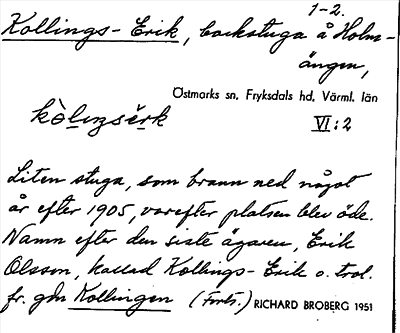 1-2.
Kollings-Erik, backstuga å Holm-
ängen,
Östmarks sn, Fryksdals hd, Värml. län
kòlıŋsěrk
VI:2
Liten stuga, som brann ned något
år efter 1905, varefter platsen blev öde.
Namn efter den siste ägaren, Erik
Olsson, kallad Kollings-Erik o. trol.
fr. gdn Kollingen (Forts.)
RICHARD BROBERG 1951